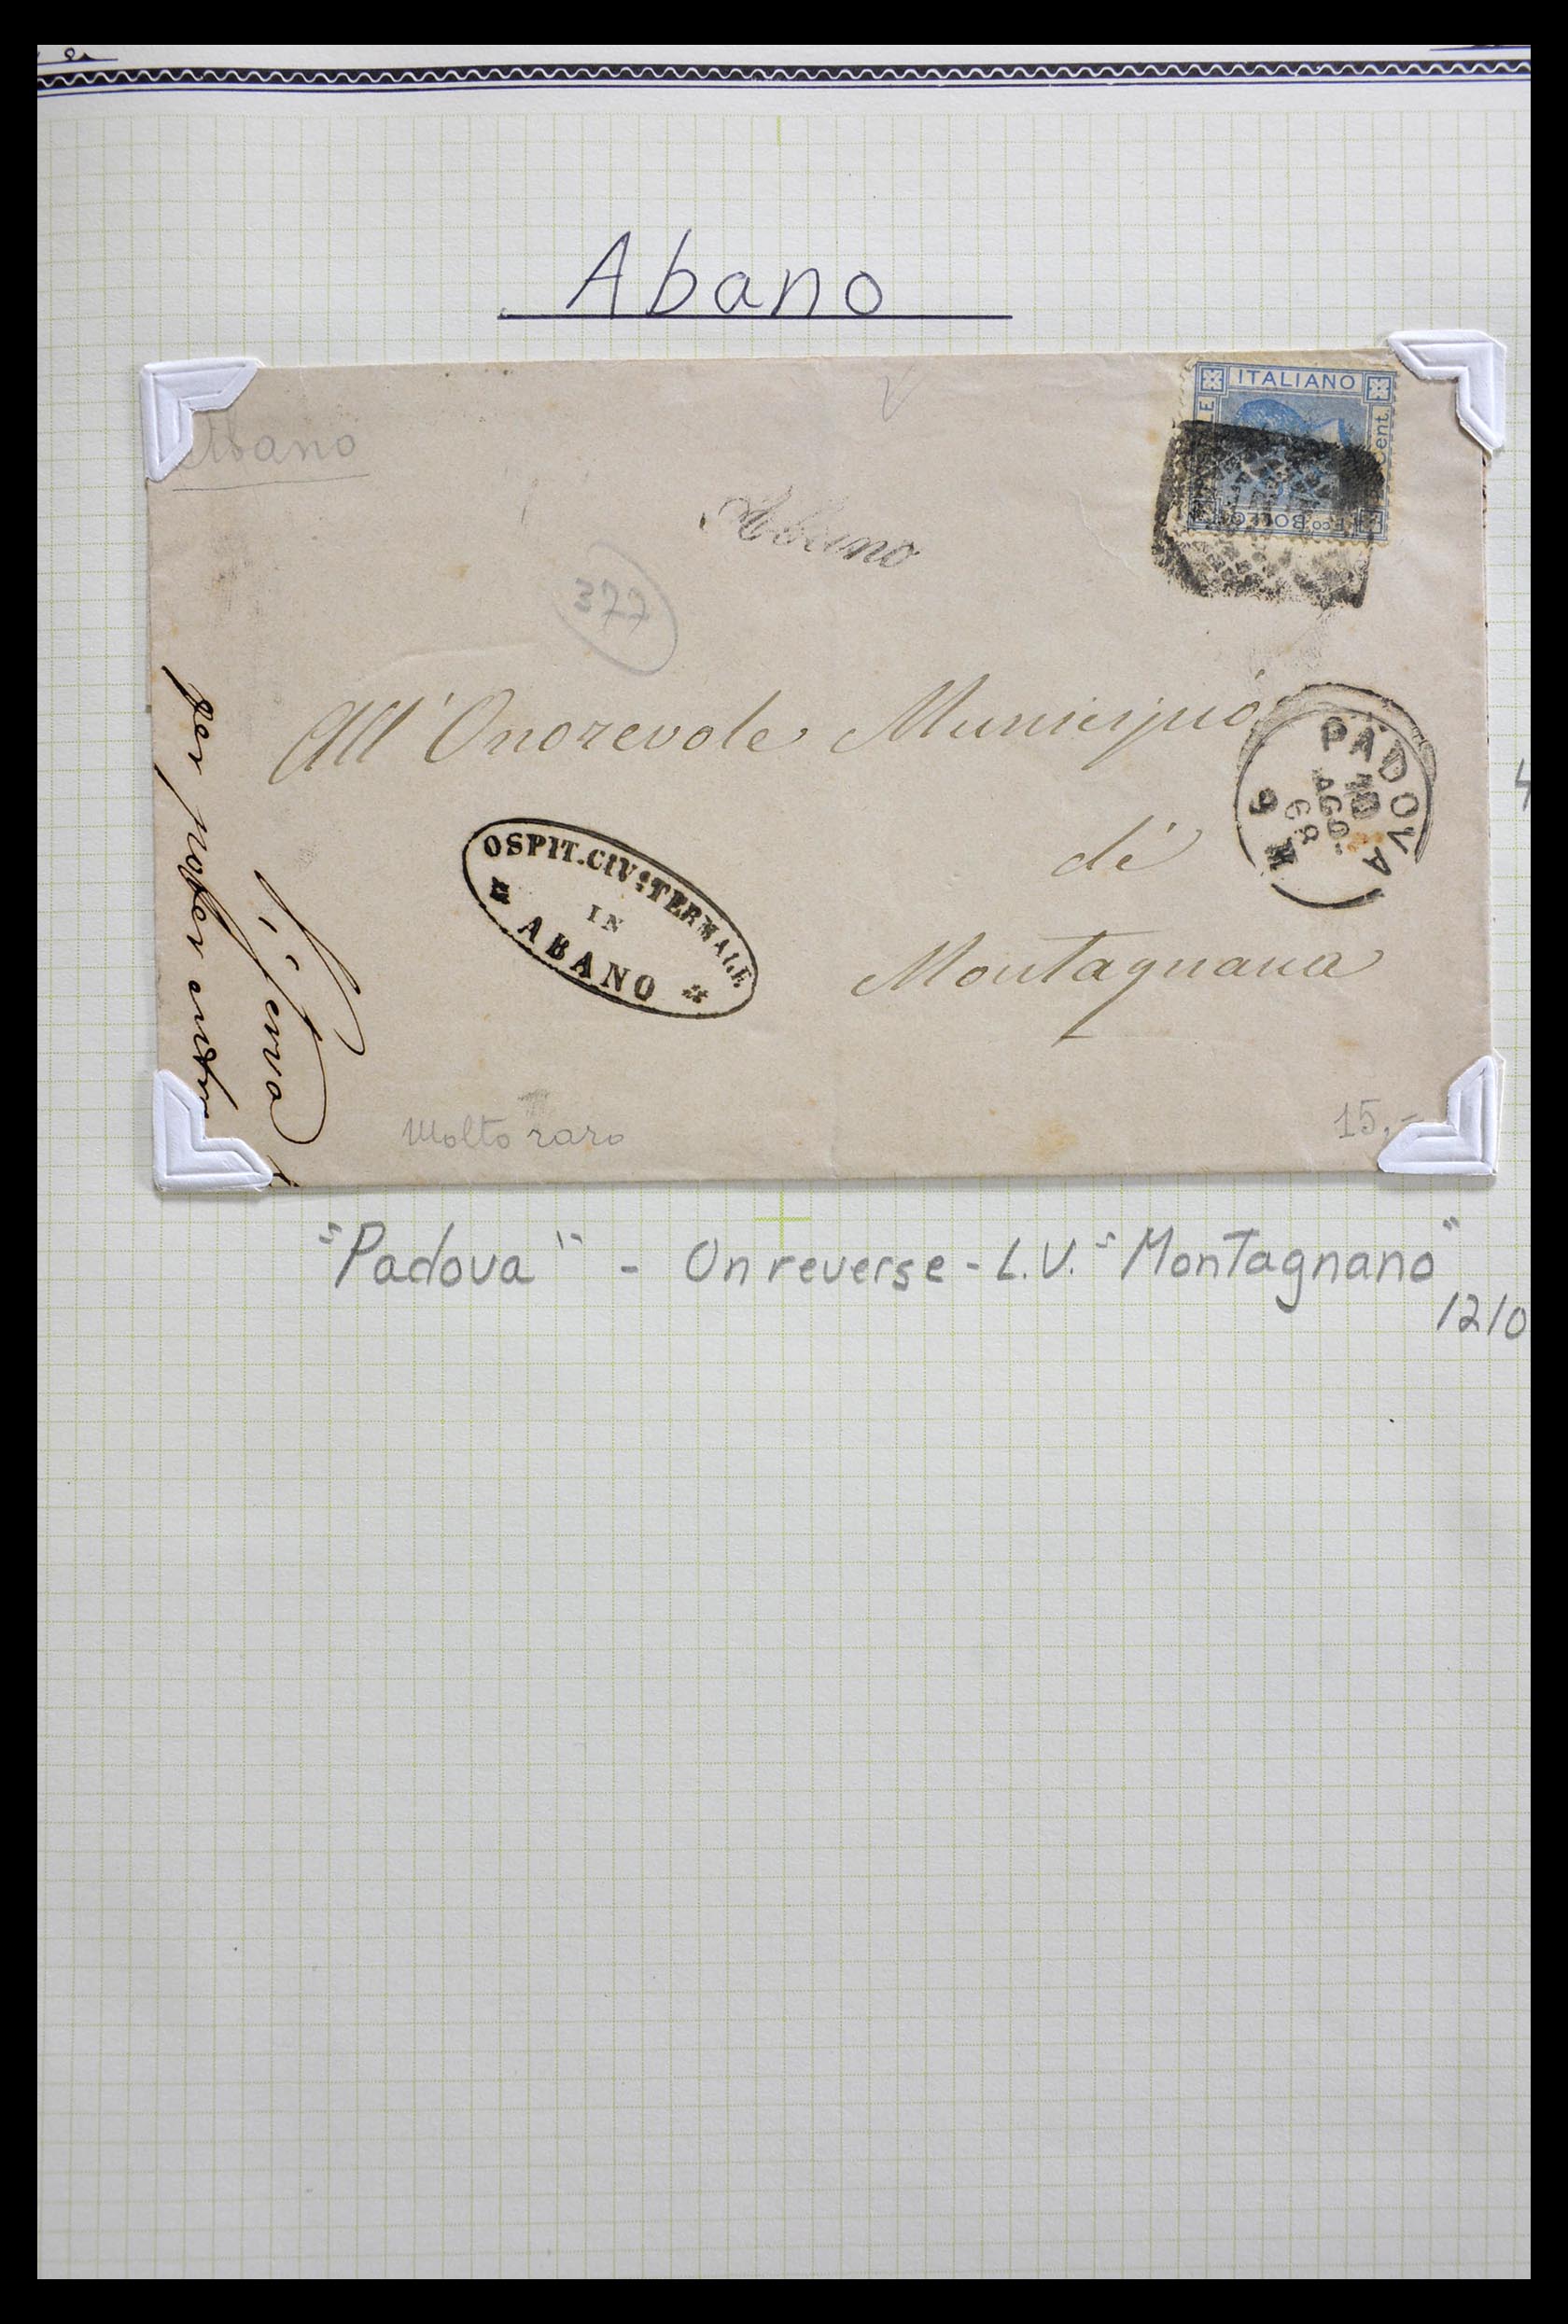 Abano
Abano
ITALIANO
Cent.
Abano
377
All' Onorevole Municipio
di
Montagnana
PADOVA
10
AGO.
68
9 M
OSPIT. CIV: TERMALE
IN
ABANO
per poter
Molto raro
15,-
"Padova" - On reverse - L.V. "Montagnano"
12/0